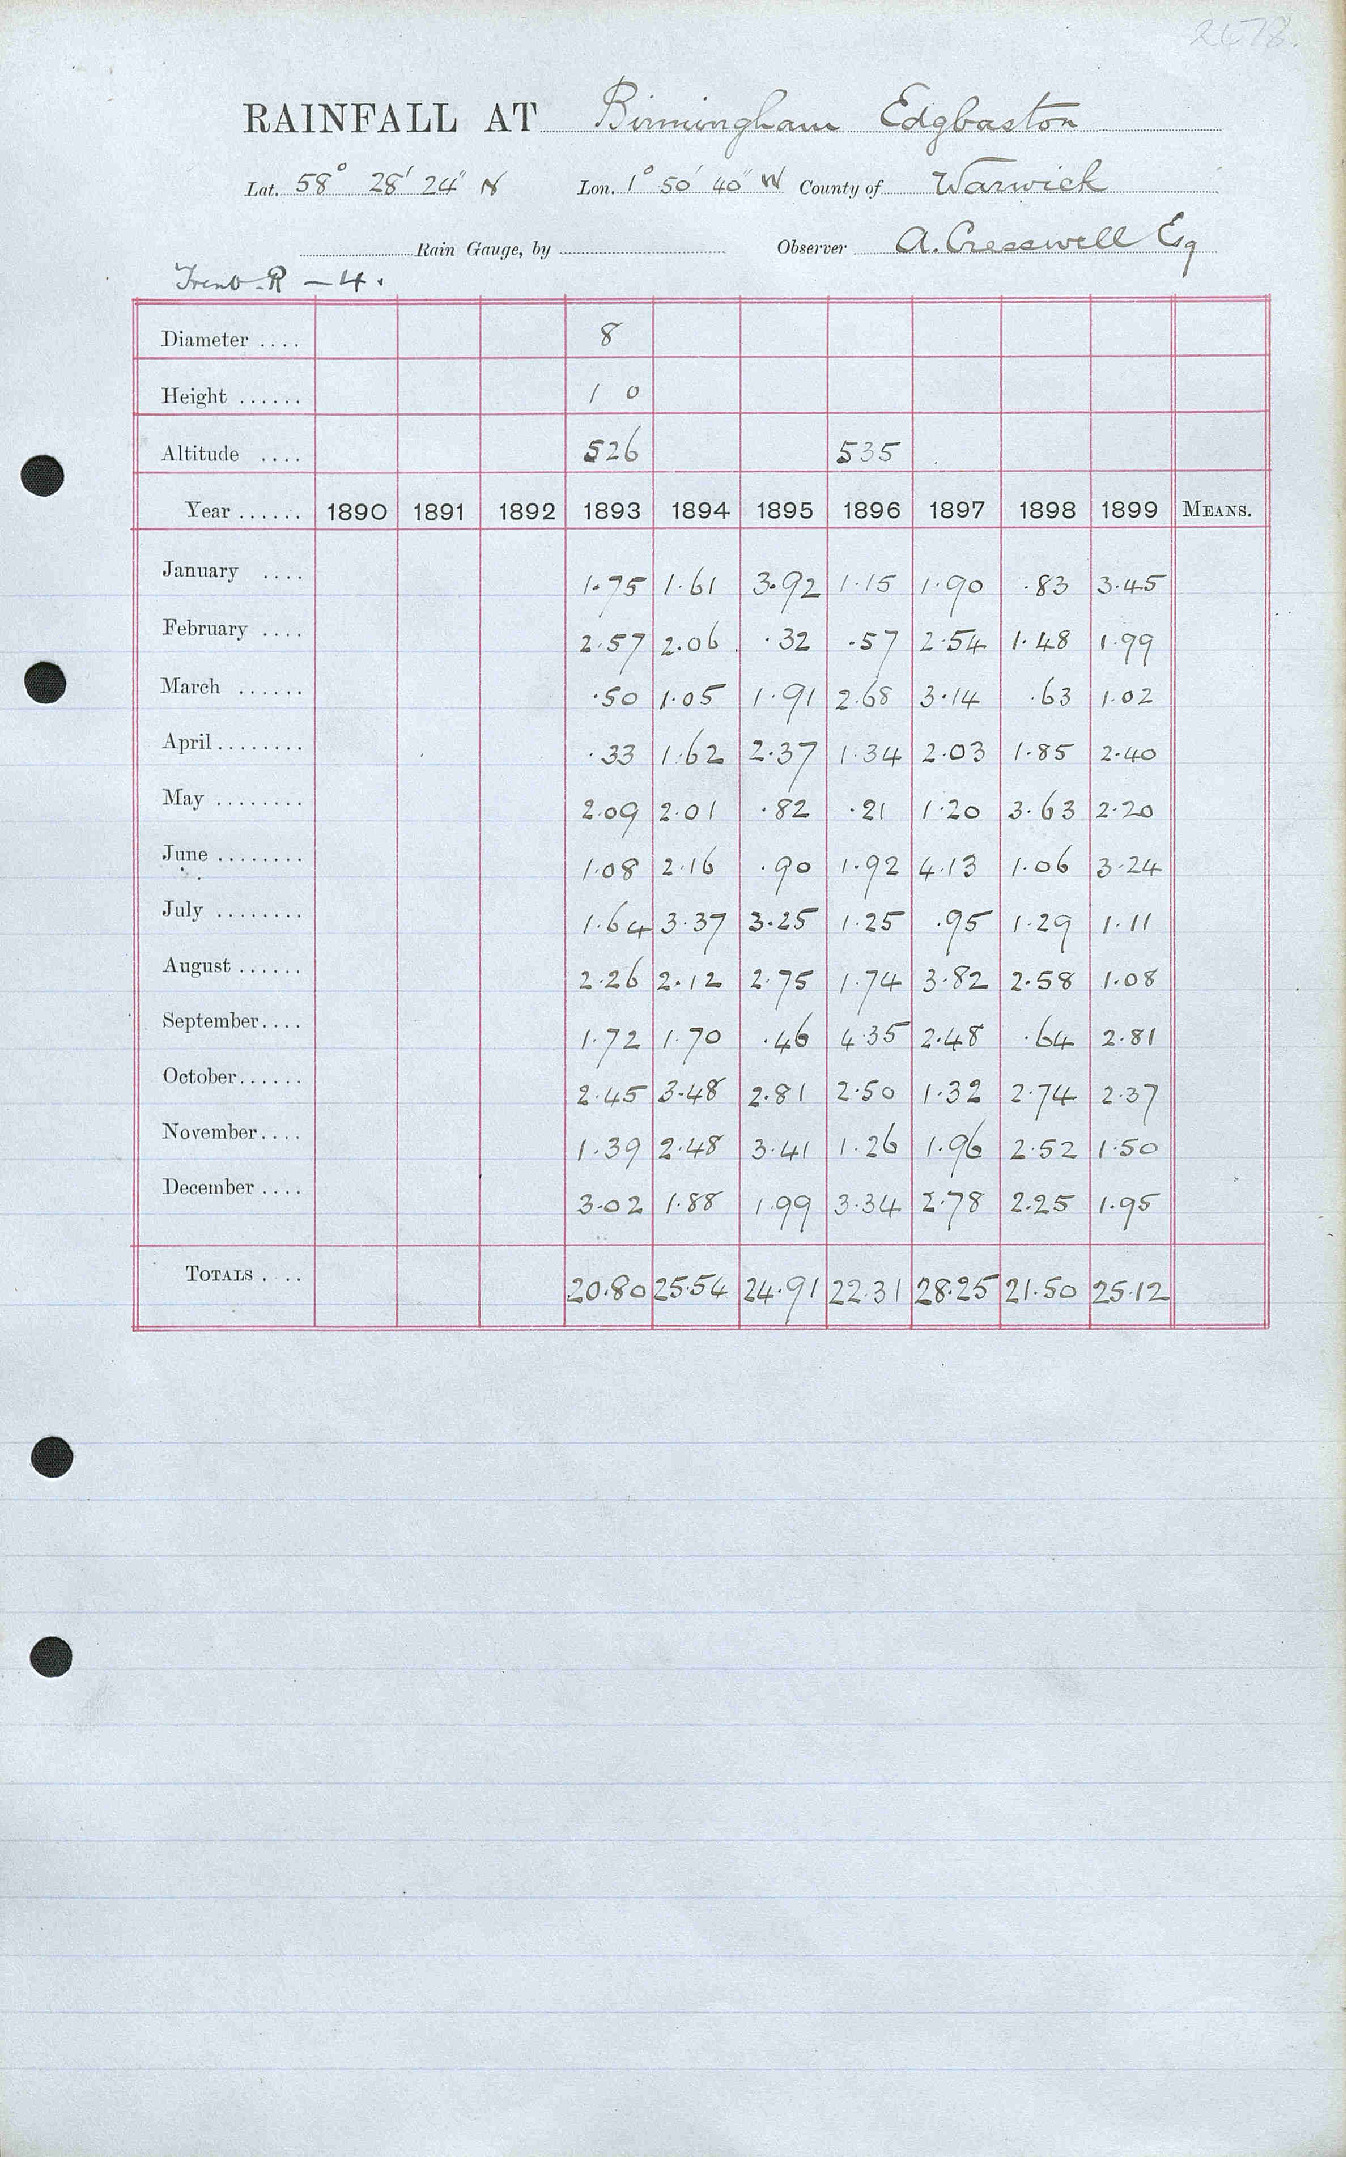 2478.
RAINFALL AT Birmingham Edgbaston
Lat. 58° 28' 24" N Lon. 1° 50' 40" W County of Warwick
Rain Gauge, by Observer A. Cresswell Esq
Trent. R – 4.
Diameter .... 8
Height ...... 1 0
Altitude .... 526 535
Year ...... 1890 1891 1892 1893 1894 1895 1896 1897 1898 1899 MEANS.
January .... 1.75 1.61 3.92 1.15 1.90 .83 3.45
February .... 2.57 2.06 .32 .57 2.54 1.48 1.99
March ...... .50 1.05 1.91 2.68 3.14 .63 1.02
April ........ .33 1.62 2.37 1.34 2.03 1.85 2.40
May ........ 2.09 2.01 .82 .21 1.20 3.63 2.20
June ........ 1.08 2.16 .90 1.92 4.13 1.06 3.24
July ........ 1.64 3.37 3.25 1.25 .95 1.29 1.11
August ...... 2.26 2.12 2.75 1.74 3.82 2.58 1.08
September.... 1.72 1.70 .46 4.35 2.48 .64 2.81
October...... 2.45 3.48 2.81 2.50 1.32 2.74 2.37
November.... 1.39 2.48 3.41 1.26 1.96 2.52 1.50
December .... 3.02 1.88 1.99 3.34 2.78 2.25 1.95
TOTALS .... 20.80 25.54 24.91 22.31 28.25 21.50 25.12